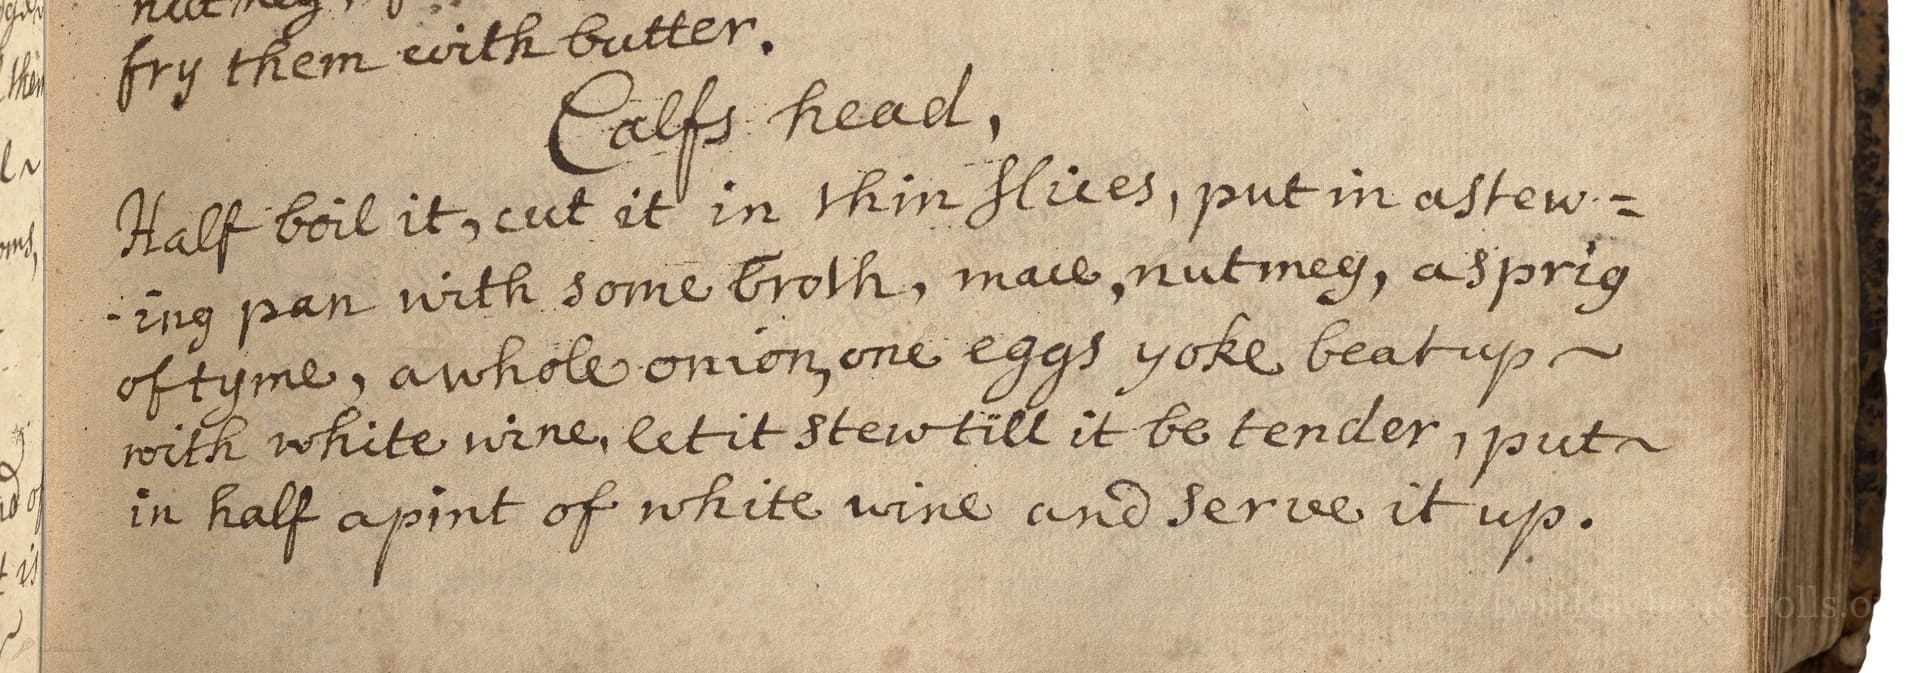 nutmeg,
fry them with butter.
Calfs head,
Half boil it, cut it in thin slices, put in a stew=
-ing pan with some broth, mace, nutmeg, a sprig
of tyme, a whole onion, one eggs yoke beat up ~
with white wine, let it stew till it be tender, put ~
in half a pint of white wine and serve it up.